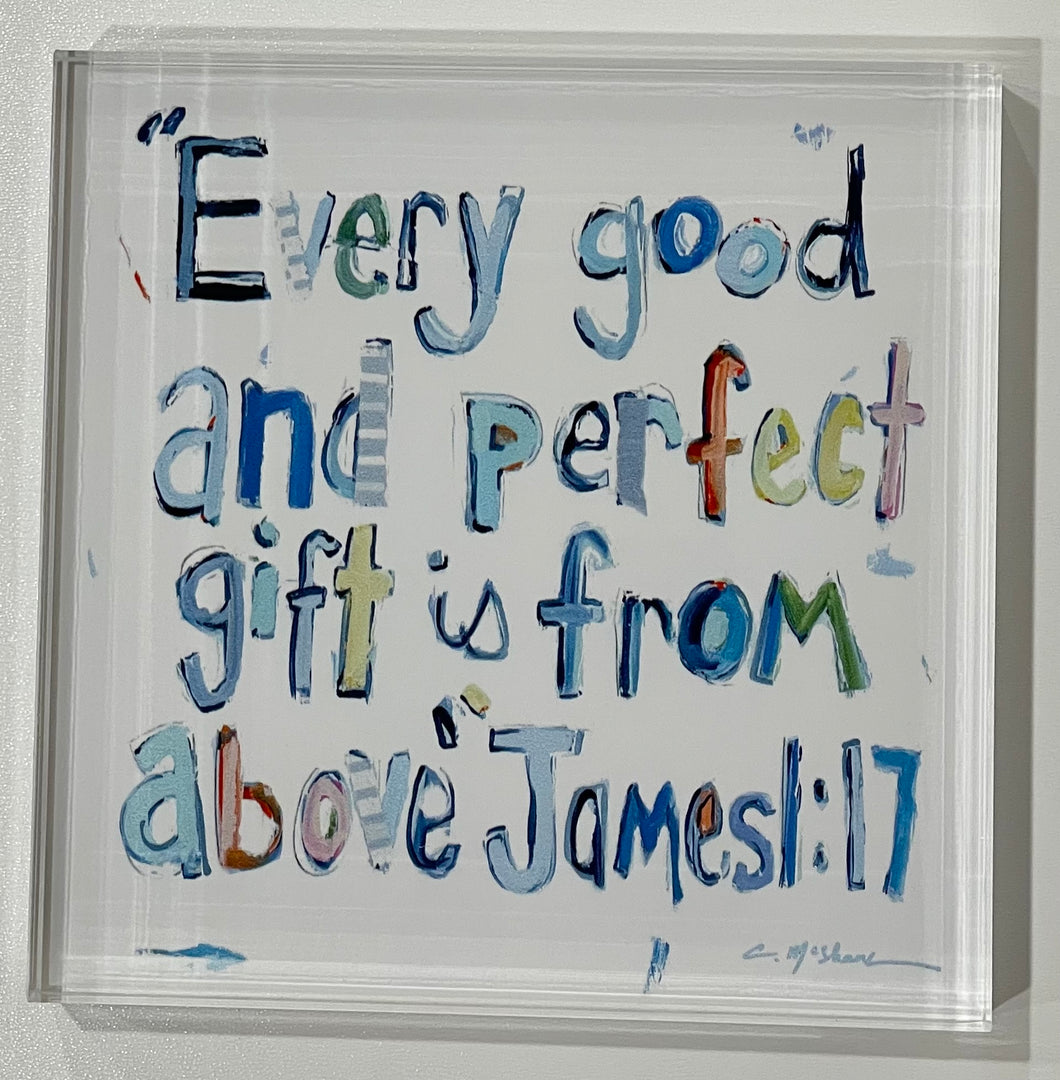 "Every good
and perfect
gift is from
above" James 1:17